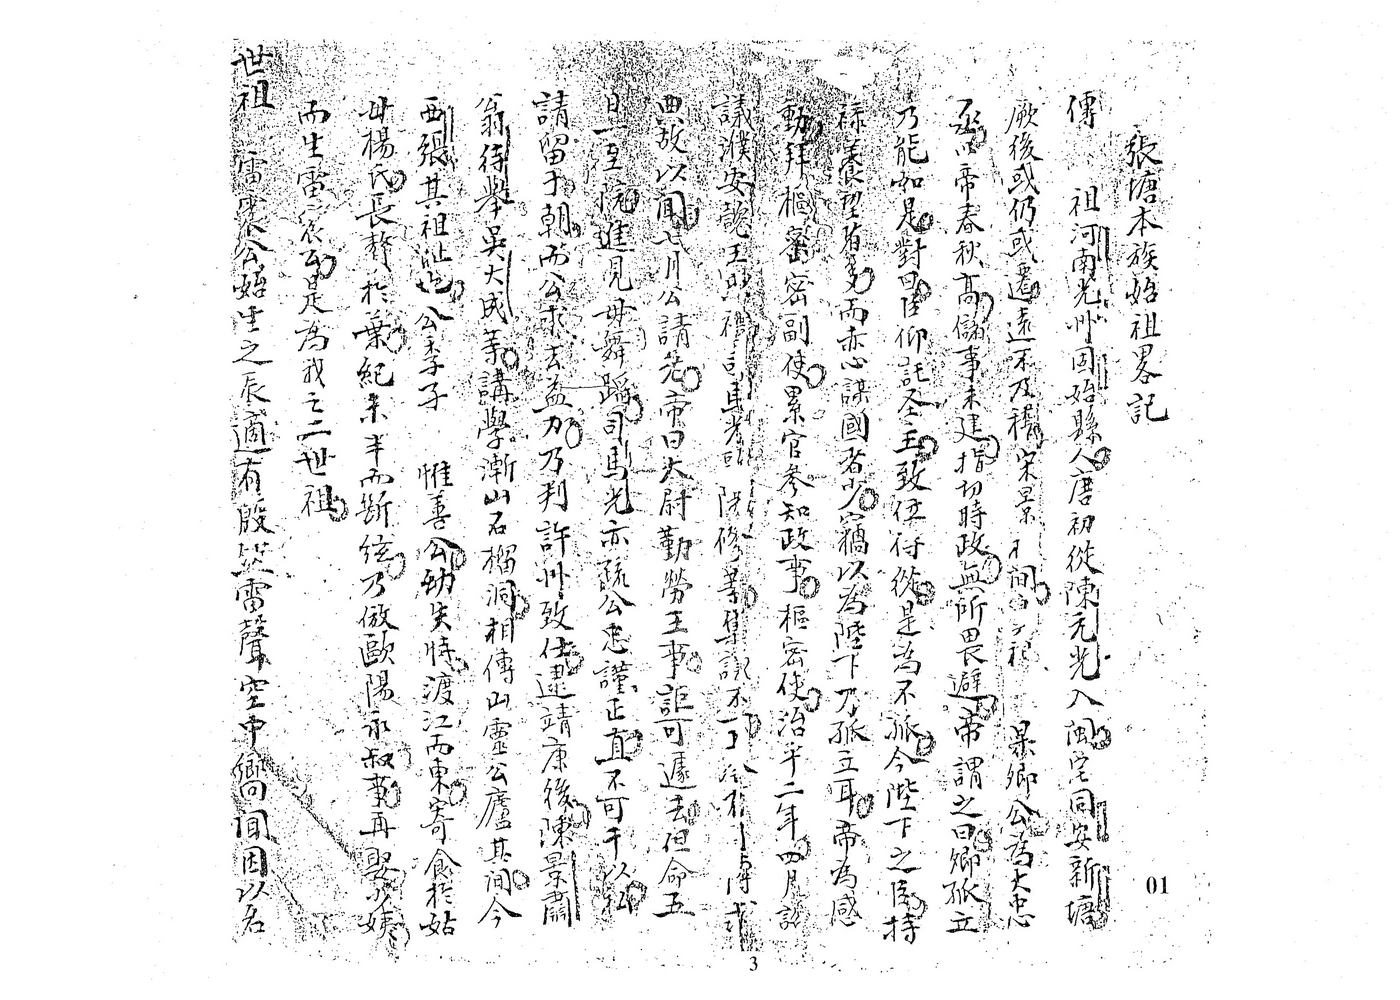 張塘本族始祖畧記
傳 祖河南光州固始縣人唐初從陳元光入闽宅同安新塘
厥後或仍或遷遠不及稽宋景 間 杲卿公為大忠
丞 帝春秋高儲事未建指切時政無所畏避帝謂之曰卿孤立
乃能如是對曰陛仰託圣主致位待從是為不孤今陛下之臣持
禄養望者多而赤心謀國者少竊以為陛下乃孤立耳帝為感
動拜樞密副使累官參知政事樞密使治平二年四月詔
議濮安懿王 禮司馬光 集議不一
典故以聞七月公請免帝曰大尉勤勞王事詎可遽去但命五
日一至院進見毋舞蹈司馬光亦疏公忠謹正直不可干以私
請留于朝而公求去益力乃判許州致仕逮靖康後陳景肅
翁待舉吳大成等講學漸山石榴洞相傳山靈公廬其間今
西張其祖祉也公季子 惟善公幼失恃渡江而東寄食於姑
毋楊氏長贅於葉紀未半而斷絃乃倣歐陽永叔事再娶小姨
而生雷 公是為我之二世祖
世祖 雷 公始生之辰適有殷 雷聲空中嚮聞因以名
01
3